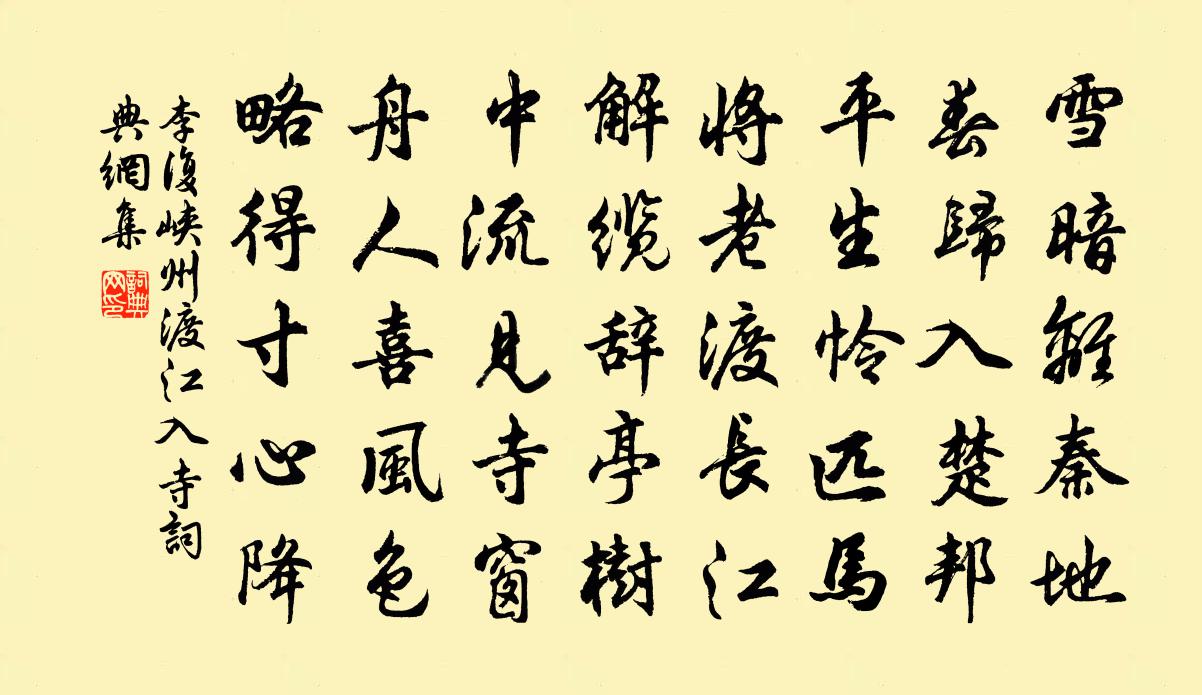 雪暗離秦地
春歸入楚邦
平生怜匹馬
將老渡長江
解缆辞亭樹
中流見寺窗
舟人喜風色
略得寸心降
李復峽州渡江入寺詞
典網集
詞典網印